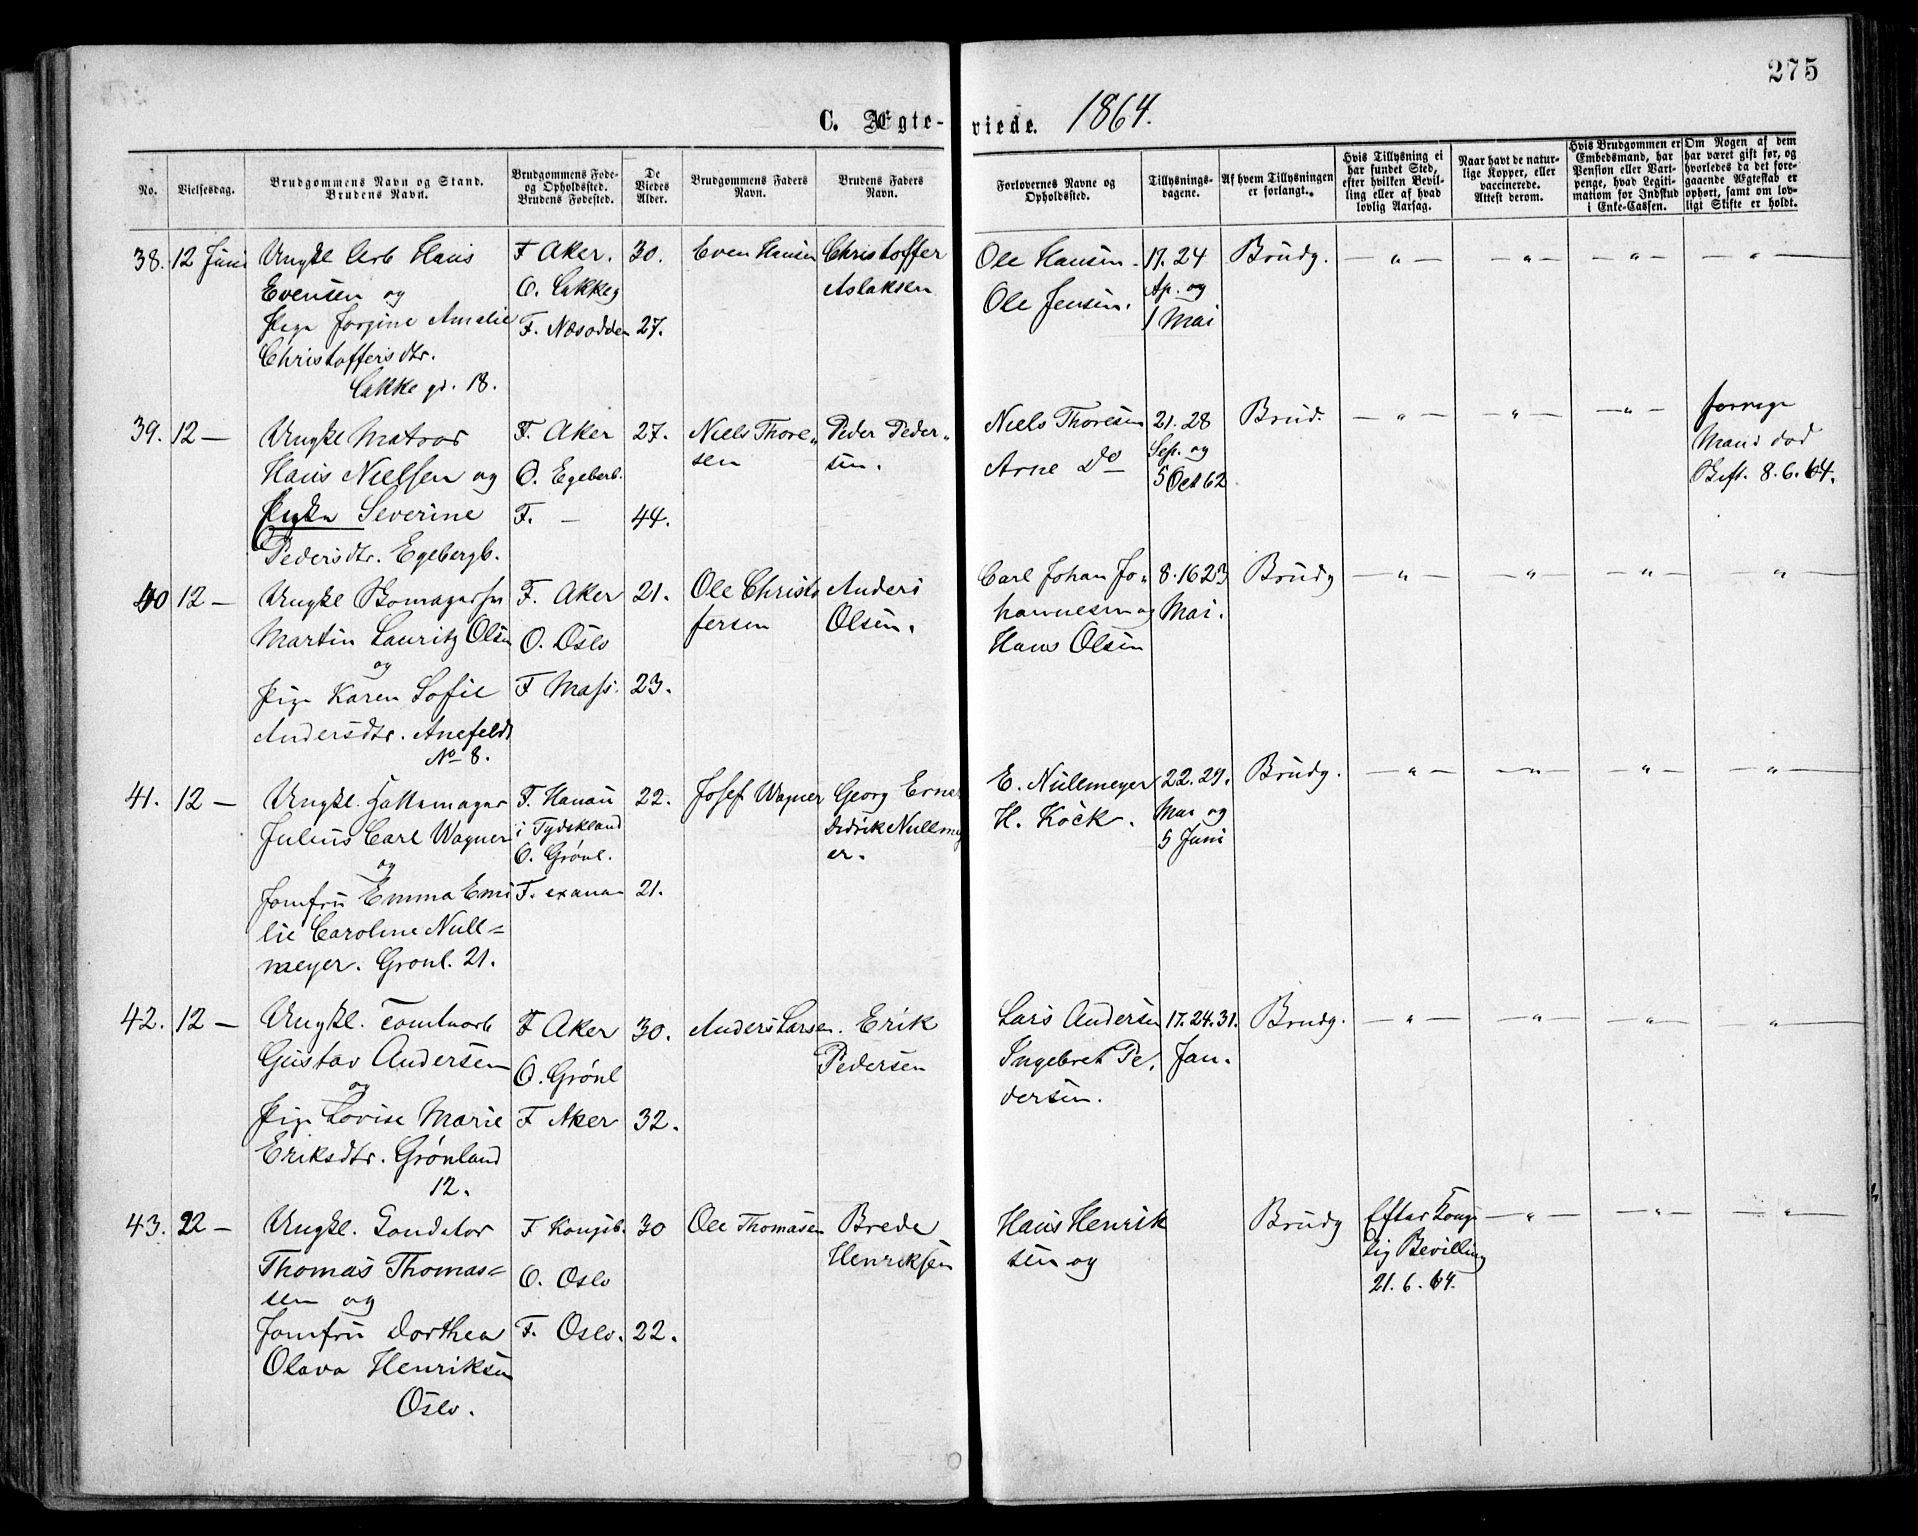 275
C. Ægte- viede. 1864.
No.
Vielsesdag.
Brudgommens Navn og Stand.
Brudens Navn.
Brudgommens Føde-
og Opholdssted.
Brudens Fødested.
De
Viedes
Alder.
Brudgommens Faders
Navn.
Brudens Faders
Navn.
Forlovernes Navne og
Opholdssted.
Tillysnings-
dagene.
Af hvem Tillysningen
er forlangt.
Hvis Tillysning ei
har fundet Sted,
efter hvilken Bevil-
ling eller af hvad
lovlig Aarsag.
Naar havt de natur-
lige Kopper, eller
vaccinerede.
Attest derom.
Hvis Brudgommen er
Embedsmand, har
Pension eller Vart-
penge, hvad Legiti-
mation for Indskud
i Enke-Cassen.
Om Nogen af dem
har været gift før, og
hvorledes da det fore-
gaaende Ægteskab er
ophørt, samt om lov-
ligt Skifte er holdt.
38. 12 Juni Ungkl Arb Hans F Aker. 30. Even Hansen Christoffer Ole Hansen. 17. 24 Brudg. — " — — " — — " — — " —
Evensen og O. Lakkeg Aslaksen Ole Jensen. Ap. og
Pige Jorgine Amalie F. Næsodden 27. 1 Mai
Christoffersdtr.
Lakkeg. 18.
39. 12 — Ungkl Matros F. Aker 27. Niels Thore„ Peder Peder„ Niels Thoresen 21. 28 Brud. — " — — " — — " — forrige
Hans Nielsen og O. Egeberb. sen sen. Arne Do Sep. og Mand død
5 Oct 62 Beft. 8. 6. 64.
Pige Severine F. — 44.
Pedersdtr. Egebergb.
40 12 — Ungkl Bomagersv F. Aker 21. Ole Christo Anders Carl Johan Jo„ 8. 16 23 Brudg — " — — " — — " — "
Martin Lauritz Olsen O. Oslo fersen Olsen. hannesen og Mai.
og Hans Olsen
Pige Karen Sofie F Mass. 23.
Andersdtr. Anefeldt
No 8.
41. 12 — Ungkl. Hattemager F. Hanau 22. Josef Wagner Georg Ernst E. Nullmeyer 22. 29. Brudg. — " — — " — " — " —
Julius Carl Wagner i Tydskland Didrik Nullmey H. Köck. Mai og
og O. Grönl. er. 5 Juni
Jomfru Emma Emi F. 21.
lie Caroline Null=
meyer. Gronl. 21.
42. 12 — Ungkl. Tomtearb F Aker 30. Anders Larsen. Erik Lars Andersen 17. 24. 31. Brudg. — " — — " — — " — — " —
Gustav Andersen O. Grönl Pedersen Ingebret Pe. Jan.
og dersen.
Pige Lovise Marie F Aker 32.
Eriksdtr. Grönland
12.
43. 22 — Ungkl. Konditor F Kongsb. 30 Ole Thomasen Brede Hans Henrik Brudg Efter Kong — " — — " — — " —
Thomas Thomas= O. Oslo Henriksen sen og lig Bevilling
sen og 21. 6. 64.
Jomfru Dorthea F. Oslo. 22.
Olava Henriksen
Oslo.